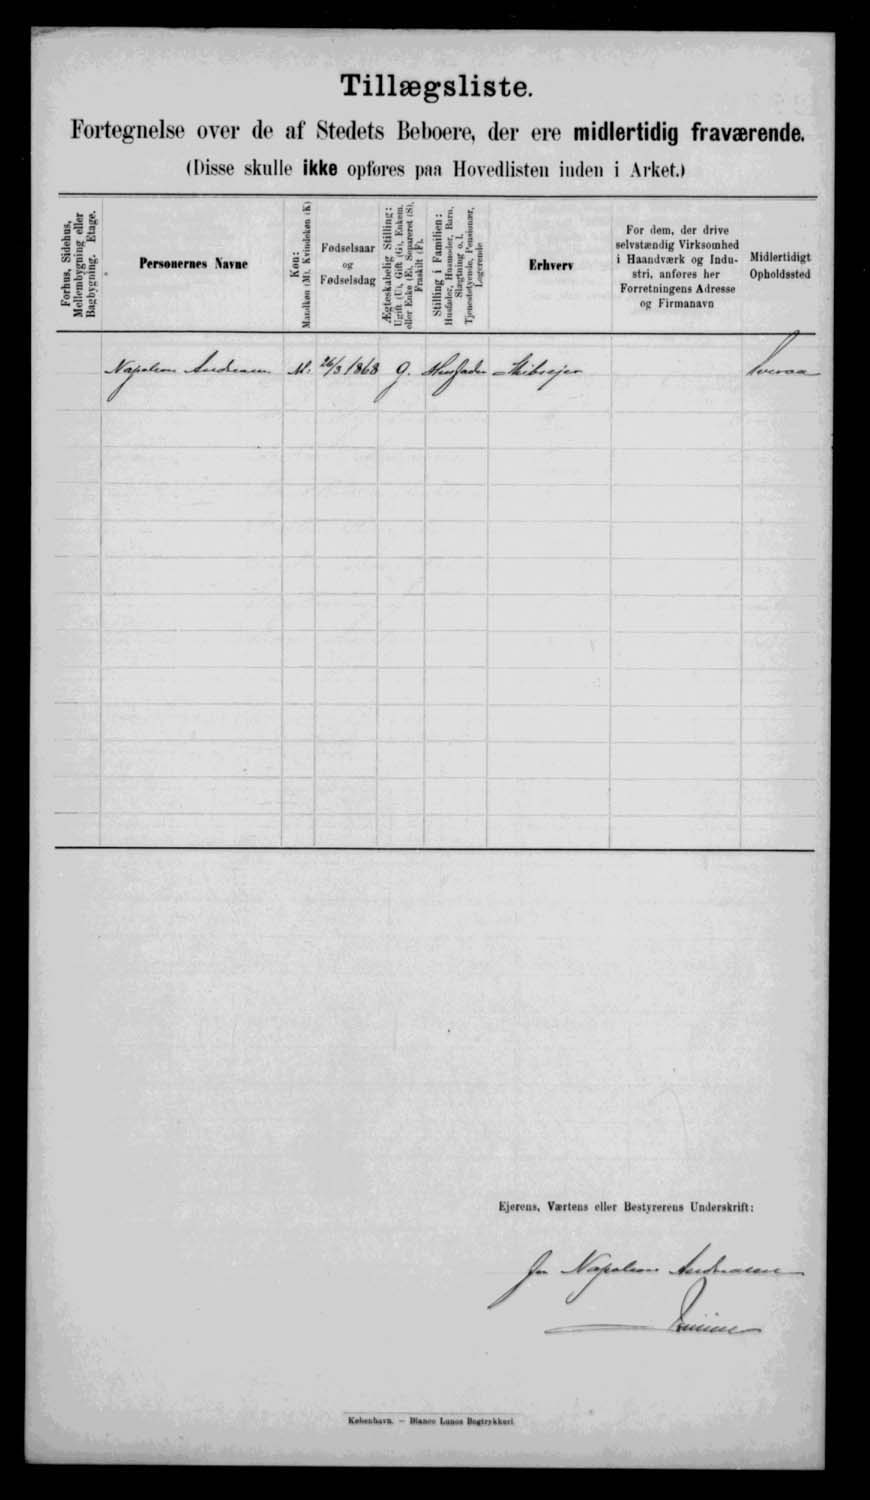 Tillægsliste.
Fortegnelse over de af Stedets Beboere, der ere midlertidig fraværende.
(Disse skulle ikke opføres paa Hovedlisten inden i Arket.)
Forhus, Sidehus,
Mellembygning eller
Bagbygning. Etage.
Personernes Navne
Køn:
Mandkøn (M), Kvindekøn (K)
Fødselsaar
og
Fødselsdag
Ægteskabelig Stilling:
Ugift (U), Gift (G), Enkem.
eller Enke (E), Separeret (S),
Fraskilt (F).
Stilling i Familien:
Husfader, Husmoder, Barn,
Slægtning o. l.
Tjenestetyende, Pensionær,
Logerende
Erhverv
For dem, der drive
selvstændig Virksomhed
i Haandværk og Indu-
stri, anføres her
Forretningens Adresse
og Firmanavn
Midlertidigt
Opholdssted
Napoleon Andreasen M. 26/3 1868 g. Husfader Skibsejer
Ejerens, Værtens eller Bestyrerens Underskrift:
for Napoleon Andreasen
København. – Bianco Lunos Bogtrykkeri